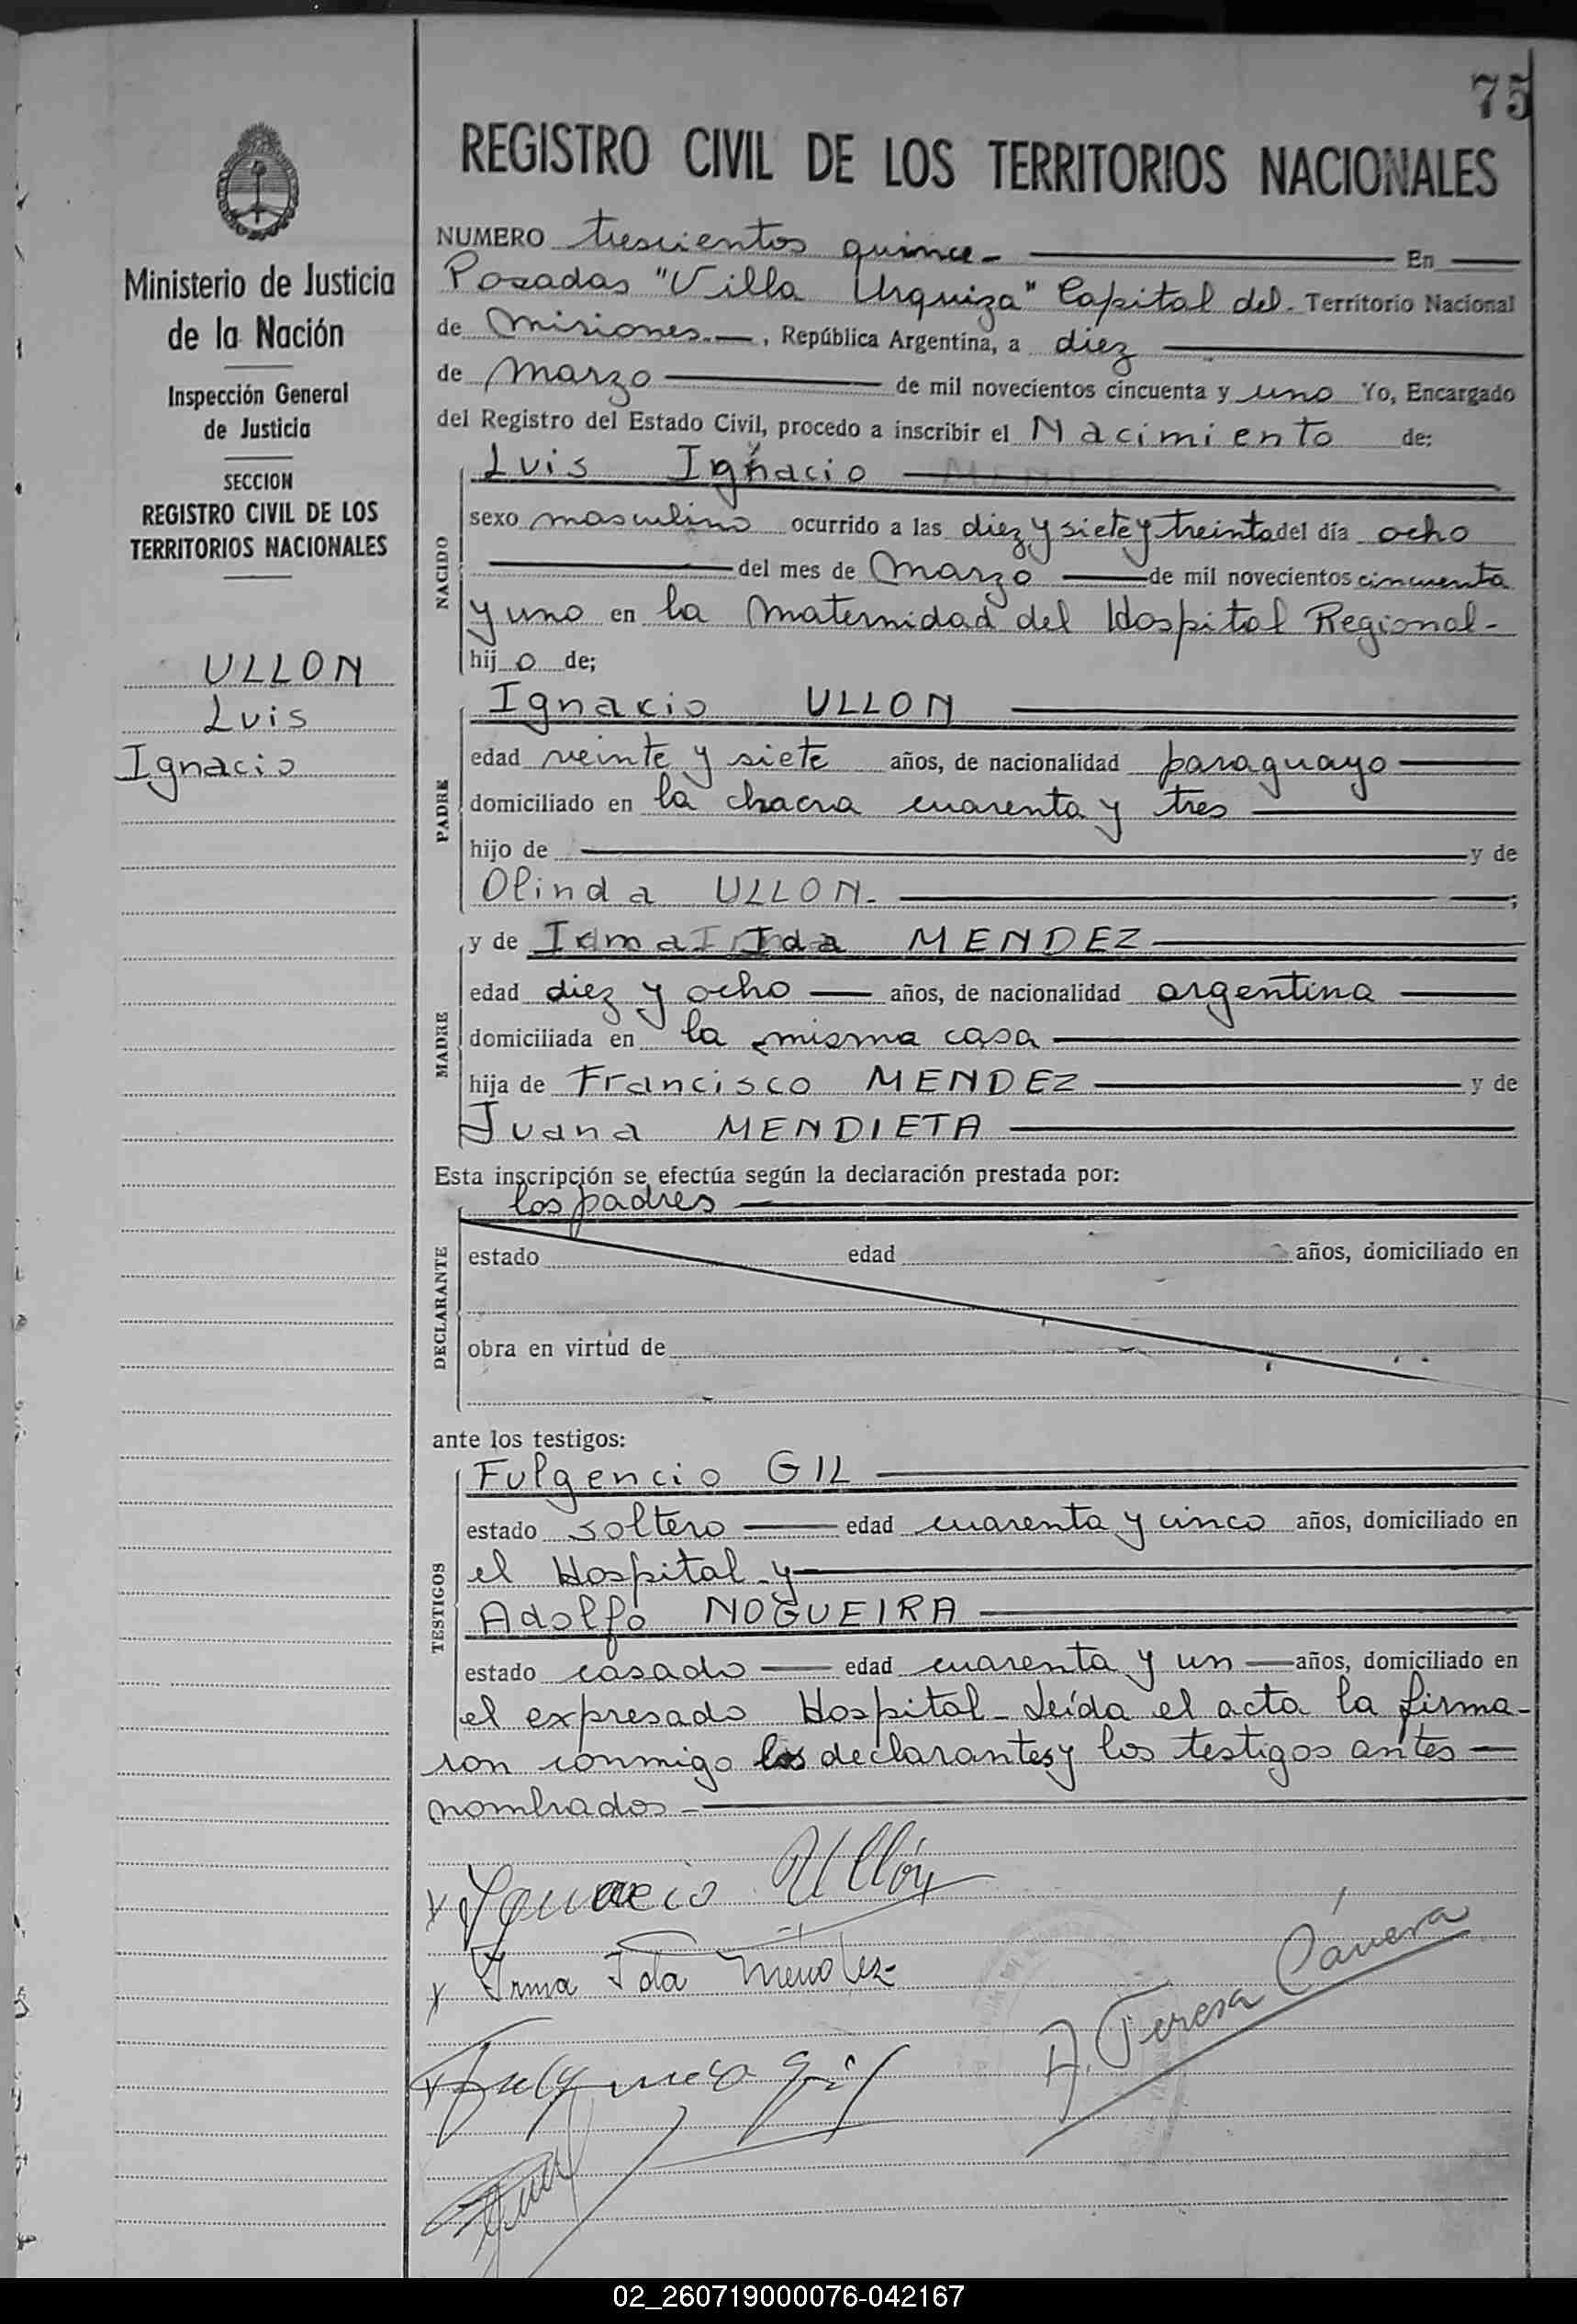 75
REGISTRO CIVIL DE LOS TERRITORIOS NACIONALES
Ministerio de Justicia
de la Nación
Inspección General
de Justicia
SECCION
REGISTRO CIVIL DE LOS
TERRITORIOS NACIONALES
ULLON
Luis
Ignacio
NUMERO trescientos quince- En
Posadas "Villa Urquiza" Capital del. Territorio Nacional
de Misiones.-, República Argentina, a diez
de Marzo de mil novecientos cincuenta y uno Yo, Encargado
del Registro del Estado Civil, procedo a inscribir el Nacimiento de:
NACIDO
Luis Ignacio
sexo masculino ocurrido a las diez y siete y treinta del día ocho
del mes de Marzo de mil novecientos cincuenta
y uno en la Maternidad del Hospital Regional-
hijo de;
PADRE
Ignacio ULLON
edad veinte y siete años, de nacionalidad paraguayo
domiciliado en la chacra cuarenta y tres
hijo de y de
Olinda ULLON.
MADRE
y de Irma Ida MENDEZ
edad diez y ocho años, de nacionalidad argentina
domiciliada en la misma casa
hija de Francisco MENDEZ y de
Juana MENDIETA
Esta inscripción se efectúa según la declaración prestada por:
los padres
DECLARANTE
estado edad años, domiciliado en
obra en virtud de
ante los testigos:
TESTIGOS
Fulgencio GIL
estado soltero edad cuarenta y cinco años, domiciliado en
el Hospital y
Adolfo NOGUEIRA
estado casado edad cuarenta y un años, domiciliado en
el expresado Hospital- Leída el acta la firma-
ron conmigo los declarantes y los testigos antes
nombrados-
x Ignacio Ullón
x Irma Ida Mendez-
x Fulgencio Gil
A. Teresa Cávera
02_260719000076-042167